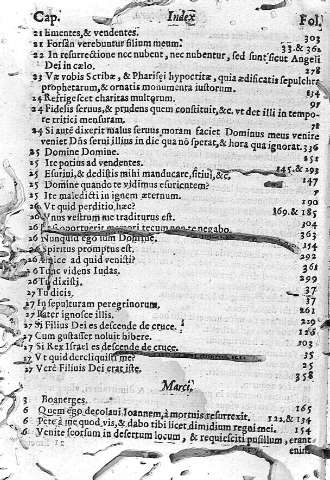 Cap. Index Fol.
21 Ementes, & vendentes. 303
21 Forsan verebuntur filium meum. 33. & 362
22 In resurrectione nec nubent, nec nubentur, sed sunt sicut Angeli
Dei in cælo. 278
23 Væ vobis Scribæ, & Pharisei hypocritæ, quia ædificatis sepulchra
prophetarum, & ornatis monumenta iustorum. 234
24 Refrigescet charitas multorum. 97
24 Fidelis seruus, & prudens quem constituit, &c. vt det illi in tempo-
re tritici mensuram. 78
24 Si autē dixerit malus seruus moram faciet Dominus meus venire
veniet Dñs serui illius in die quò sperat, & hora qua ignorat. 336
25 Domine Domine. 151
25 Ite potius ad vendentes.
25 Esuriui, & dedistis mihi manducare, sitiui, &c. 145. & 293
25 Domine quando te vidimus esurientem? 7
25 Ite maledicti in ignem æternum. 190
26 Vt quid perditio hæc? 169. & 185
26 Vnus vestrum me traditurus est. 194
26 oportuerit tecum non te negabo. 363
26 Nunquid ego sum Domine. 154
26 Spiritus promptus est. 292
26 Amice ad quid venisti? 361
26 Tunc videns Iudas. 291
26 Tu dixisti. 37
27 Tu dicis. 37
27 In sepulturam peregrinorum. 261
27 Pater ignosce illis. 229
27 Si Filius Dei es descende de cruce.
27 Cum gustasset noluit bibere. 126
27 Si Rex Israel es descende de cruce. 35
27 Vt quid dereliquisti me? 25
27 Verè Filius Dei erat iste. 358
Marci.
3 Boanerges. 165
6 Quem ego decolaui Ioannem, à mortuis resurrexit. 122. & 134
6 Pete à me quod vis, & dabo tibi licet dimidium regni mei. 154
6 Venite seorsum in desertum locum, & requiescite pusillum, erant
enim